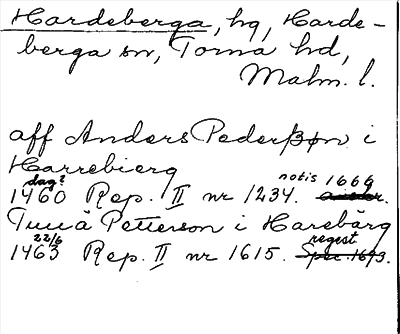 Hardeberga, hg, Harde-
berga sn, Torna hd,
Malm. l.
aff Anders Pederßøn i
Harrebierg
dag? notis 1669
1460 Rep. II nr 1234.
Tuuå Petterson i Harebärg
22/6 regest
1463 Rep. II nr 1615. Spec 1693.